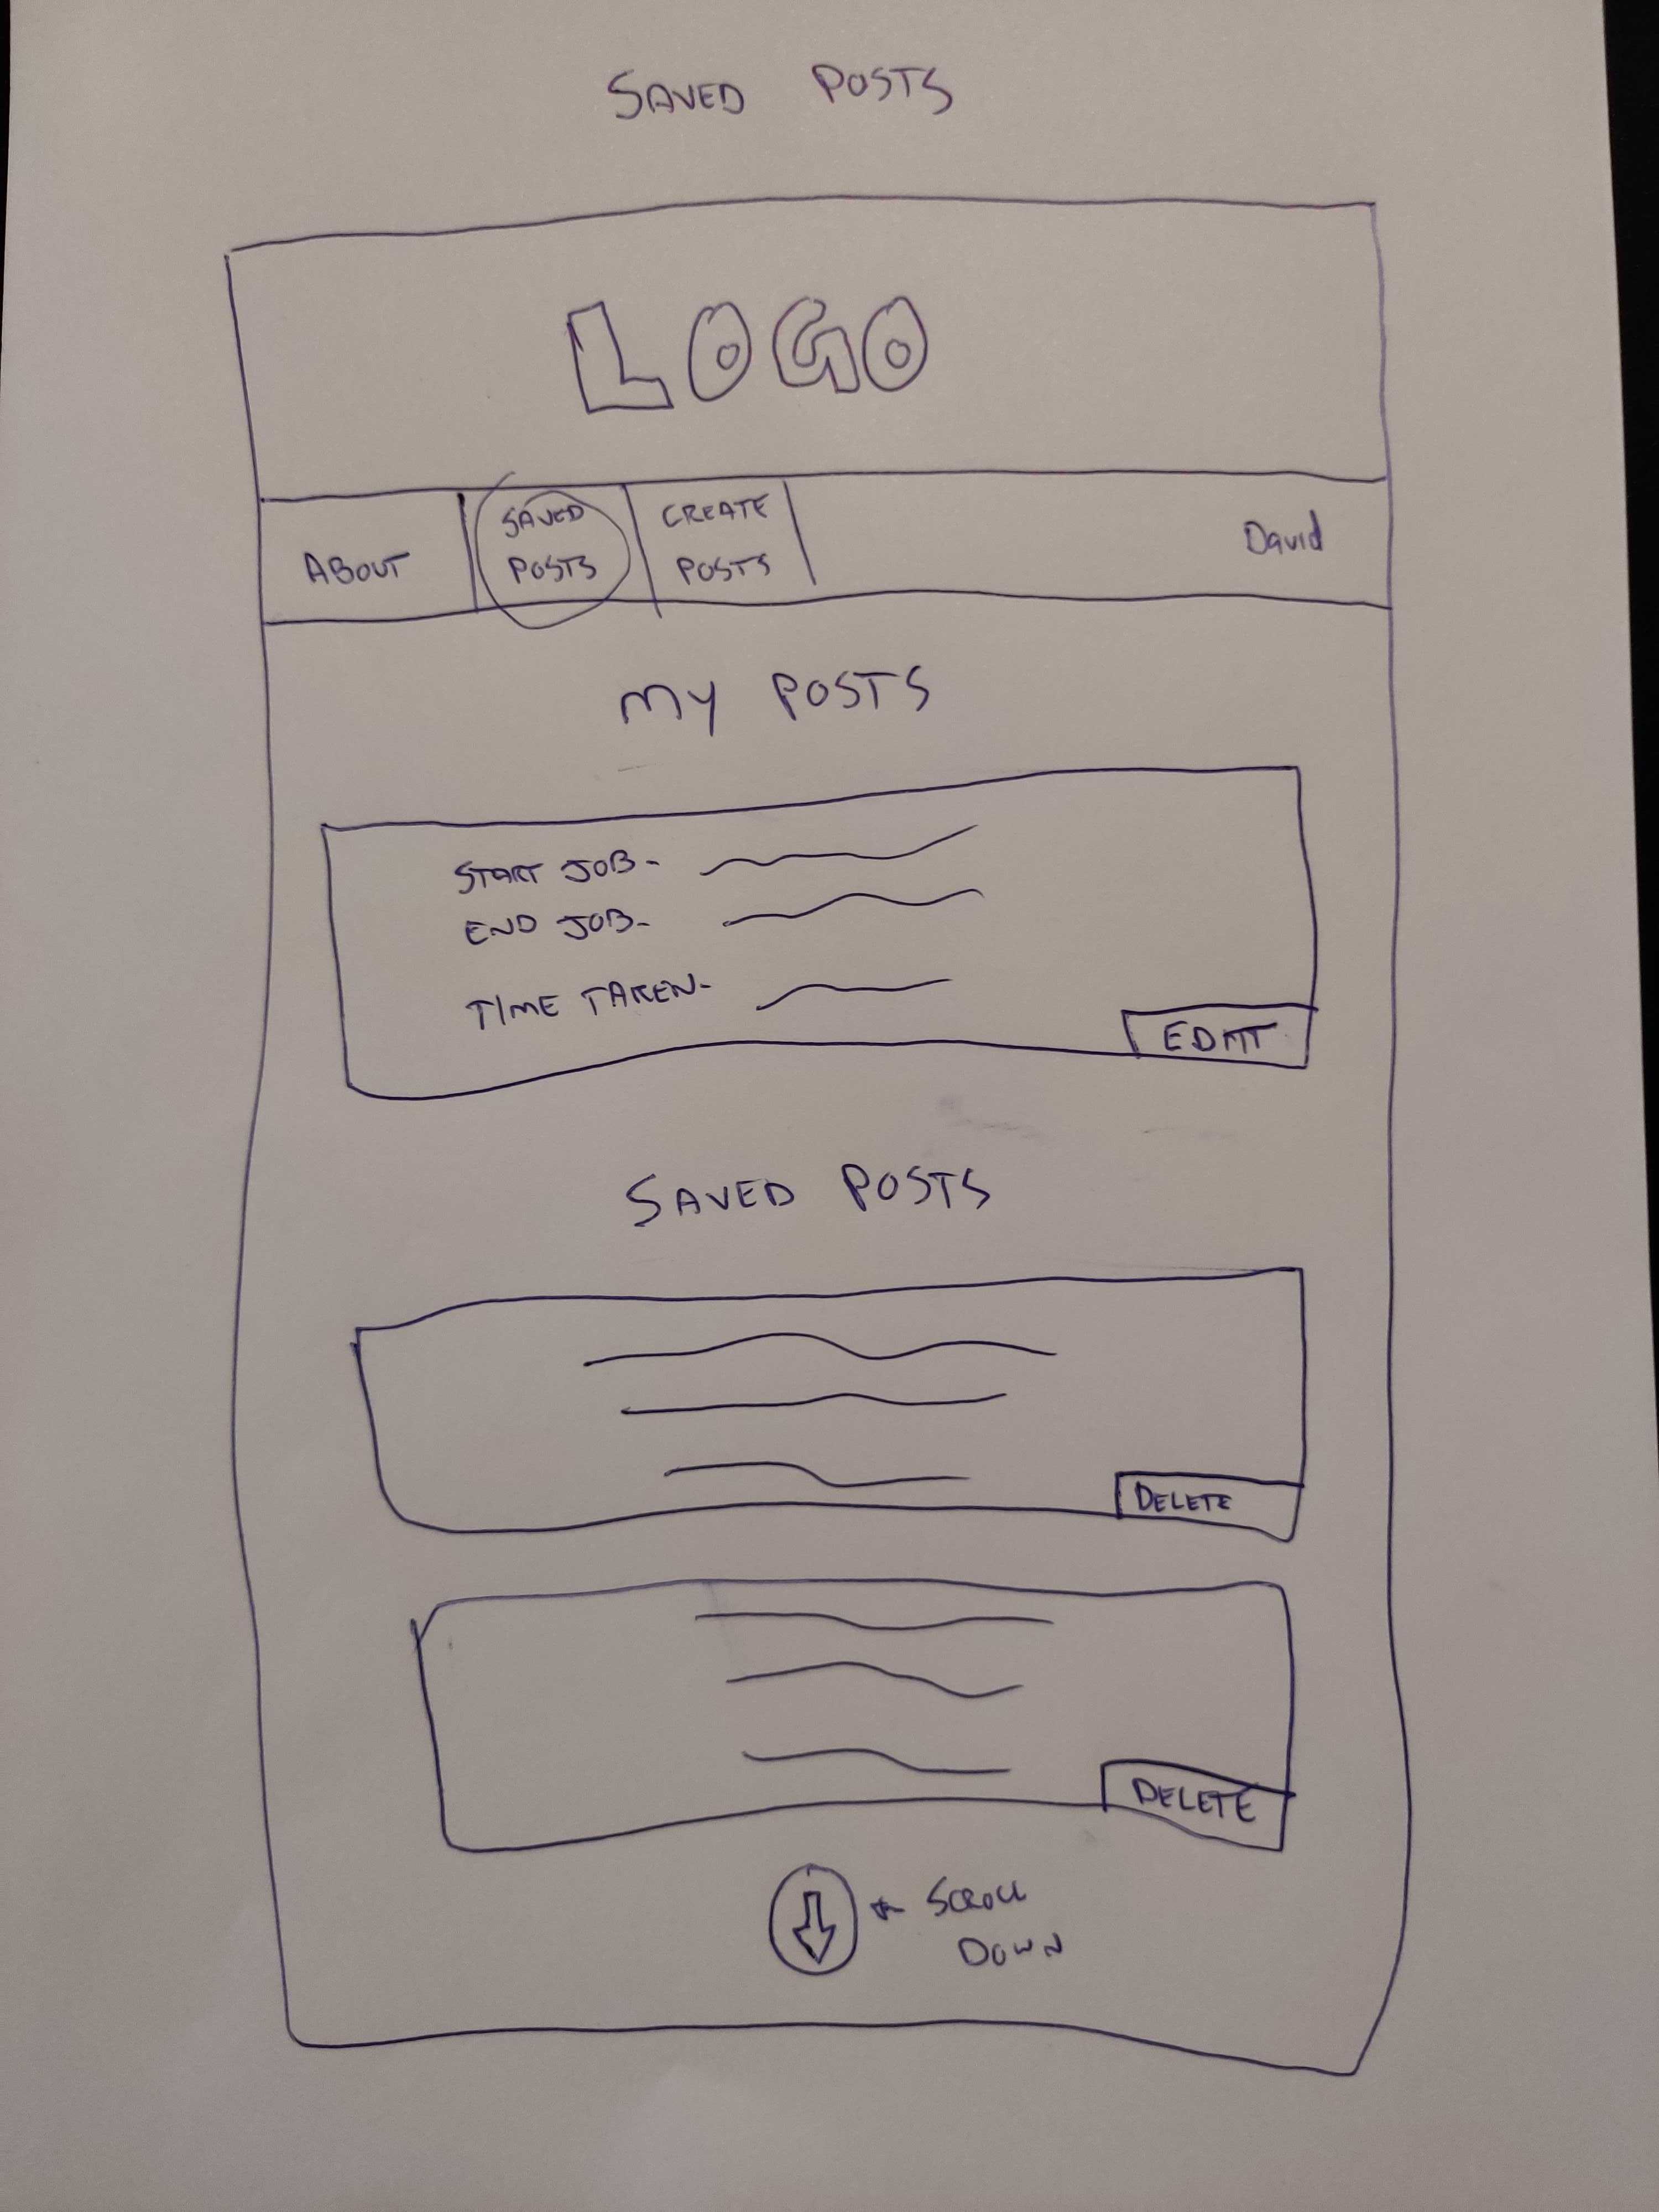 SAVED POSTS
LOGO
ABOUT
SAVED
POSTS
CREATE
POSTS
David
MY POSTS
START JOB-
END JOB-
TIME TAKEN-
EDIT
SAVED POSTS
DELETE
DELETE
← SCROLL
DOWN